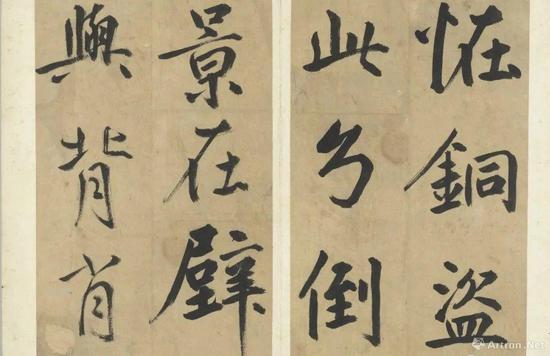 恠銅盜
此乃倒
景在壁
與背肖
Artron.Net